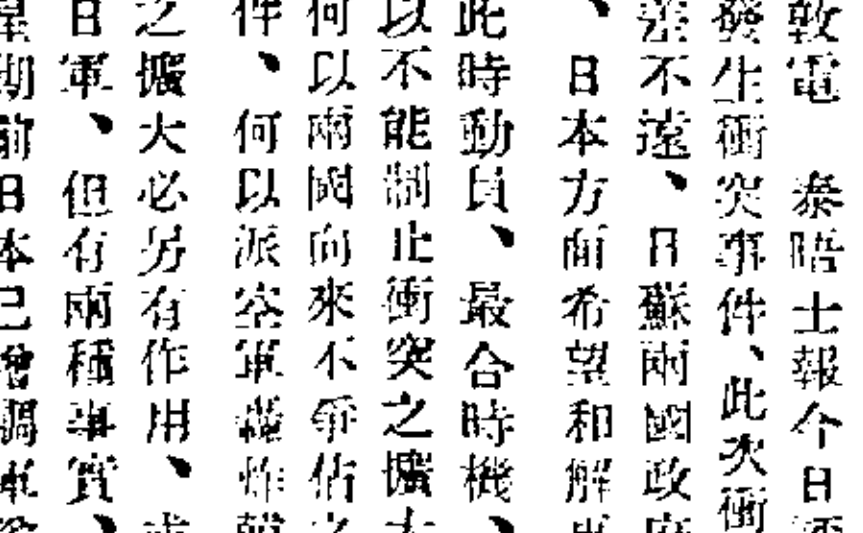 敦電　泰晤士報今日
發生衝突事件、此次衝
差不遠、日蘇兩國政府
、日本方面希望和解
此時動員、最合時機、
以不能制止衝突之擴大
何以兩國向來不爭佔之
件、何以派空軍轟炸
之擴大必另有作用、或
日軍、但有兩種事實、
星期前日本已增調軍